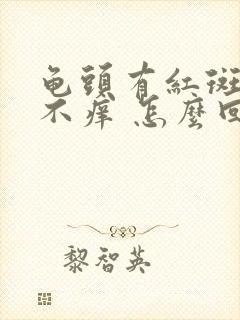 龟頭有紅斑
不癢 怎麼回
黎智英